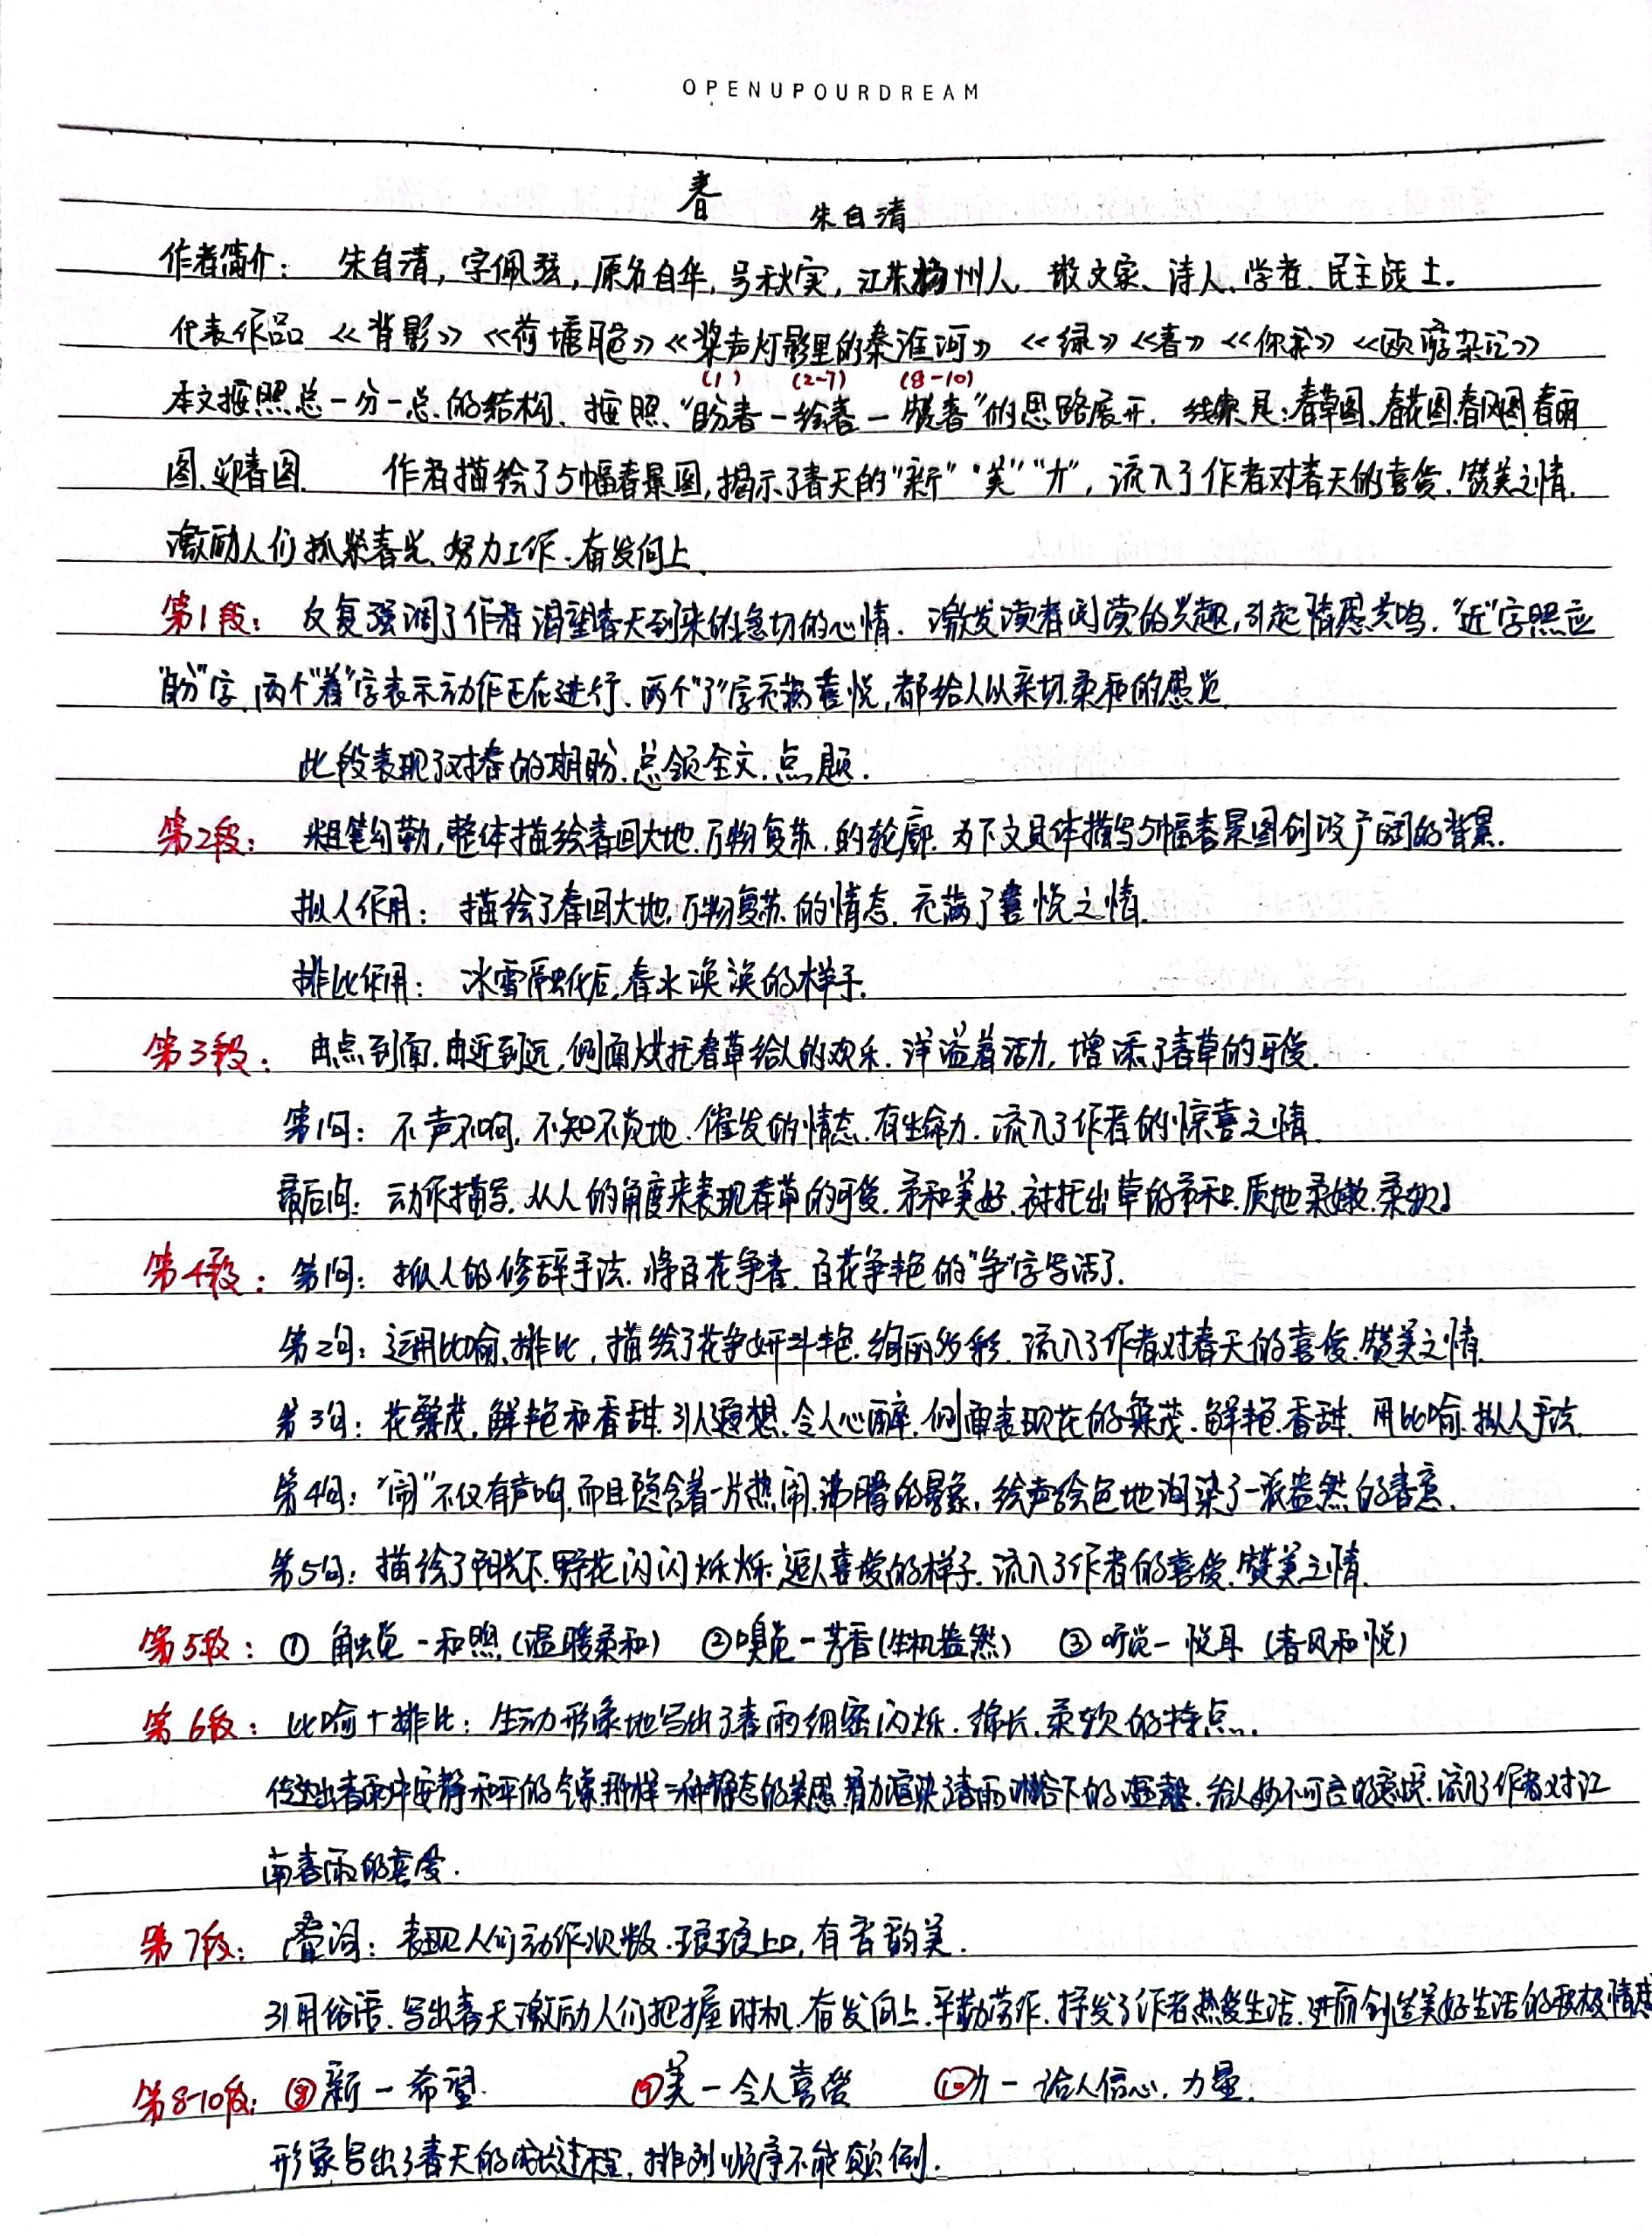 OPENUPOURDREAM
春
朱自清
作者简介： 朱自清，字佩弦，原名自华，号秋实，江苏扬州人 散文家、诗人、学者、民主战士.
代表作品 《背影》《荷塘月色》《桨声灯影里的秦淮河》 《绿》《春》《你我》《欧游杂记》
(1) (2-7) (8-10)
本文按照总一分一总的结构、按照“盼春一绘春一赞春”的思路展开. 线索是：春草图、春花图、春风图、春雨
图、迎春图. 作者描绘了5幅春景图，揭示了春天的“新”“美”“力”，流入了作者对春天的喜爱、赞美之情.
激励人们抓紧春光、努力工作、奋发向上.
第1段： 反复强调了作者渴望春天到来的急切的心情. 激发读者阅读的兴趣，引起情感共鸣. “近”字照应
“盼”字，两个“着”字表示动作正在进行、两个“了”字充满喜悦，都给人以亲切、柔和的感觉.
此段表现了对春的期盼、总领全文、点题.
第2段： 粗笔勾勒，整体描绘春回大地、万物复苏、的轮廓. 为下文具体描写5幅春景图创设广阔的背景.
拟人作用： 描绘了春回大地，万物复苏的情态，充满了喜悦之情.
排比作用： 冰雪融化后，春水涣涣的样子.
第3段： 由点到面、由近到远，侧面烘托春草给人的欢乐. 洋溢着活力，增添了春草的可爱.
第1句： 不声不响，不知不觉地、催发的情态，有生命力. 流入了作者的惊喜之情.
最后句： 动作描写，从人的角度来表现春草的可爱、柔和美好、衬托出草的柔和、质地柔嫩、柔软.
第4段： 第1句： 拟人的修辞手法、将百花争春、百花争艳的“争”字写活了.
第2句： 运用比喻、排比，描绘了花争妍斗艳、绚丽多彩、流入了作者对春天的喜爱、赞美之情.
第3句： 花繁茂，鲜艳和香甜，引人遐想、令人心醉，侧面表现花的繁茂、鲜艳、香甜. 用比喻、拟人手法.
第4句： “闹”不仅有声响，而且隐含着一片热闹、沸腾的景象，绘声绘色地渲染了一派盎然的春意.
第5句： 描绘了阳光下，野花闪闪烁烁、逗人喜爱的样子. 流入了作者的喜爱、赞美之情.
第5段： ① 触觉-和煦（温暖柔和） ②嗅觉-芳香（生机盎然） ③听觉-悦耳（春风和悦）
第6段： 比喻+排比： 生动形象地写出了春雨细密闪烁、绵长、柔软的特点.
传达出春雨中安静和平的气象，那样一种静态的美感，着力渲染了春雨 下的 . 给人妙不可言的意境. 流入了作者对江
南春雨的喜爱.
第7段： 叠词： 表现人们动作次数、琅琅上口，有音韵美.
引用俗语、写出春天激励人们把握时机、奋发向上、辛勤劳作、抒发了作者热爱生活、进而创造美好生活的积极情感
第8-10段： ⑧新-希望. ⑨美-令人喜爱 ⑩力-给人信心、力量.
形象写出了春天的成长过程，排列顺序不能颠倒.